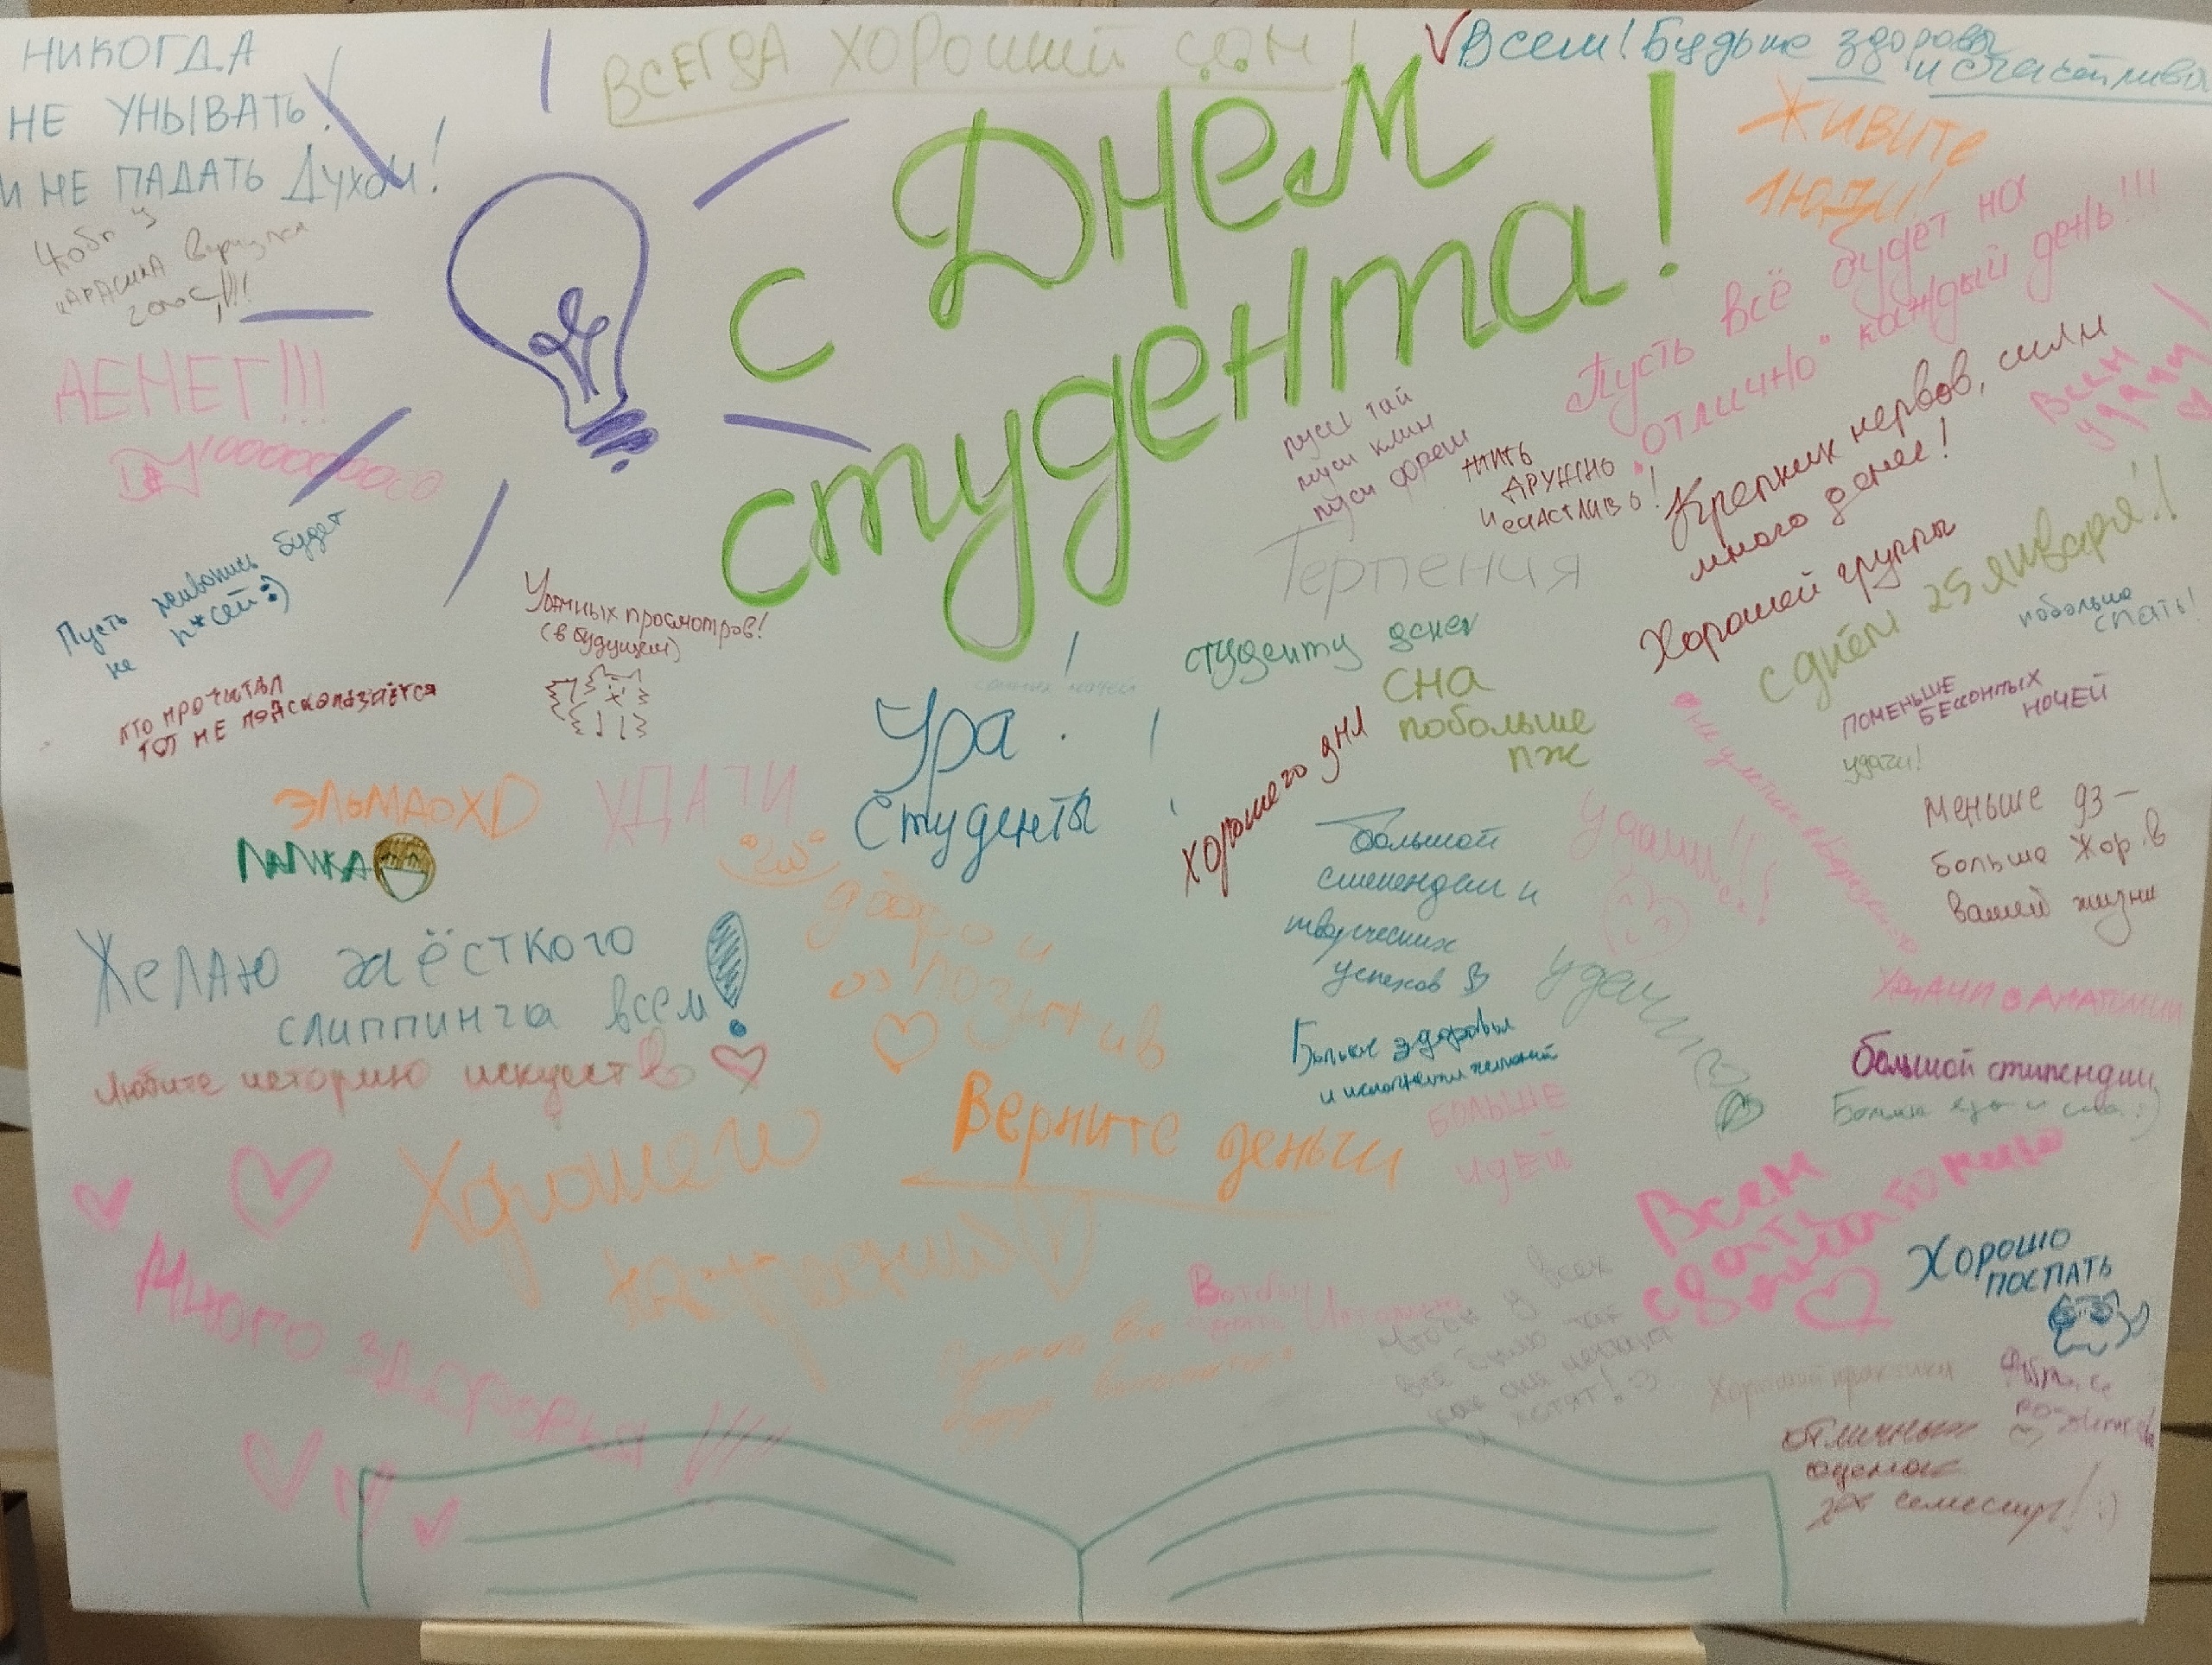 НИКОГДА
НЕ УНЫВАТЬ!
И НЕ ПАДАТЬ Духом!
ВСЕГДА ХОРОШИЙ СОН!
Всем! Будьте здоровы
и счастливы
ЖИВИТЕ
ЛЮДИ!
С Днем
студента!
вернулся
голос!!!
ДЕНЕГ!!!
Пусть всё будет на
"отлично" каждый день!!!
Всем
удачи
Крепких нервов, силы
много денег!
Хорошей группы
пусси тай
пусси клин
пусси фреш
жить
дружно
и счастливо!
Терпения
с днём 25 января!!
побольше
спать!
Пусть живопись будет
не п*сей :)
Удачных просмотров!
(в будущем)
кто прочитал
тот не подскользается
студенту денег
сна
побольше
пж
хорошего дня
Ура!
Студенты
поменьше
бессонных
ночей
удачи!
Меньше дз —
больше жор в
вашей жизни
ЭЛЬМАОXD
УДАЧИ
ЛАПКА
Желаю жёсткого
слиппинга всем!
Любите историю искуств
добро и
позитив
большой
стипендии и
творческих
успехов
Удачи!!!
удачи
Удачи в анатомии
Больше здоровья
и исполнения желаний
больше
идей
большой стипендии
Больше еды и сна :)
Верните деньги
Хорошего
настроения
Много здоровья!!!
Всем
Хорошо
поспать
чтобы у всех
всё было так
как они
хотят! :)
Хорошей практики
отличных
оценок
за семестр! :)